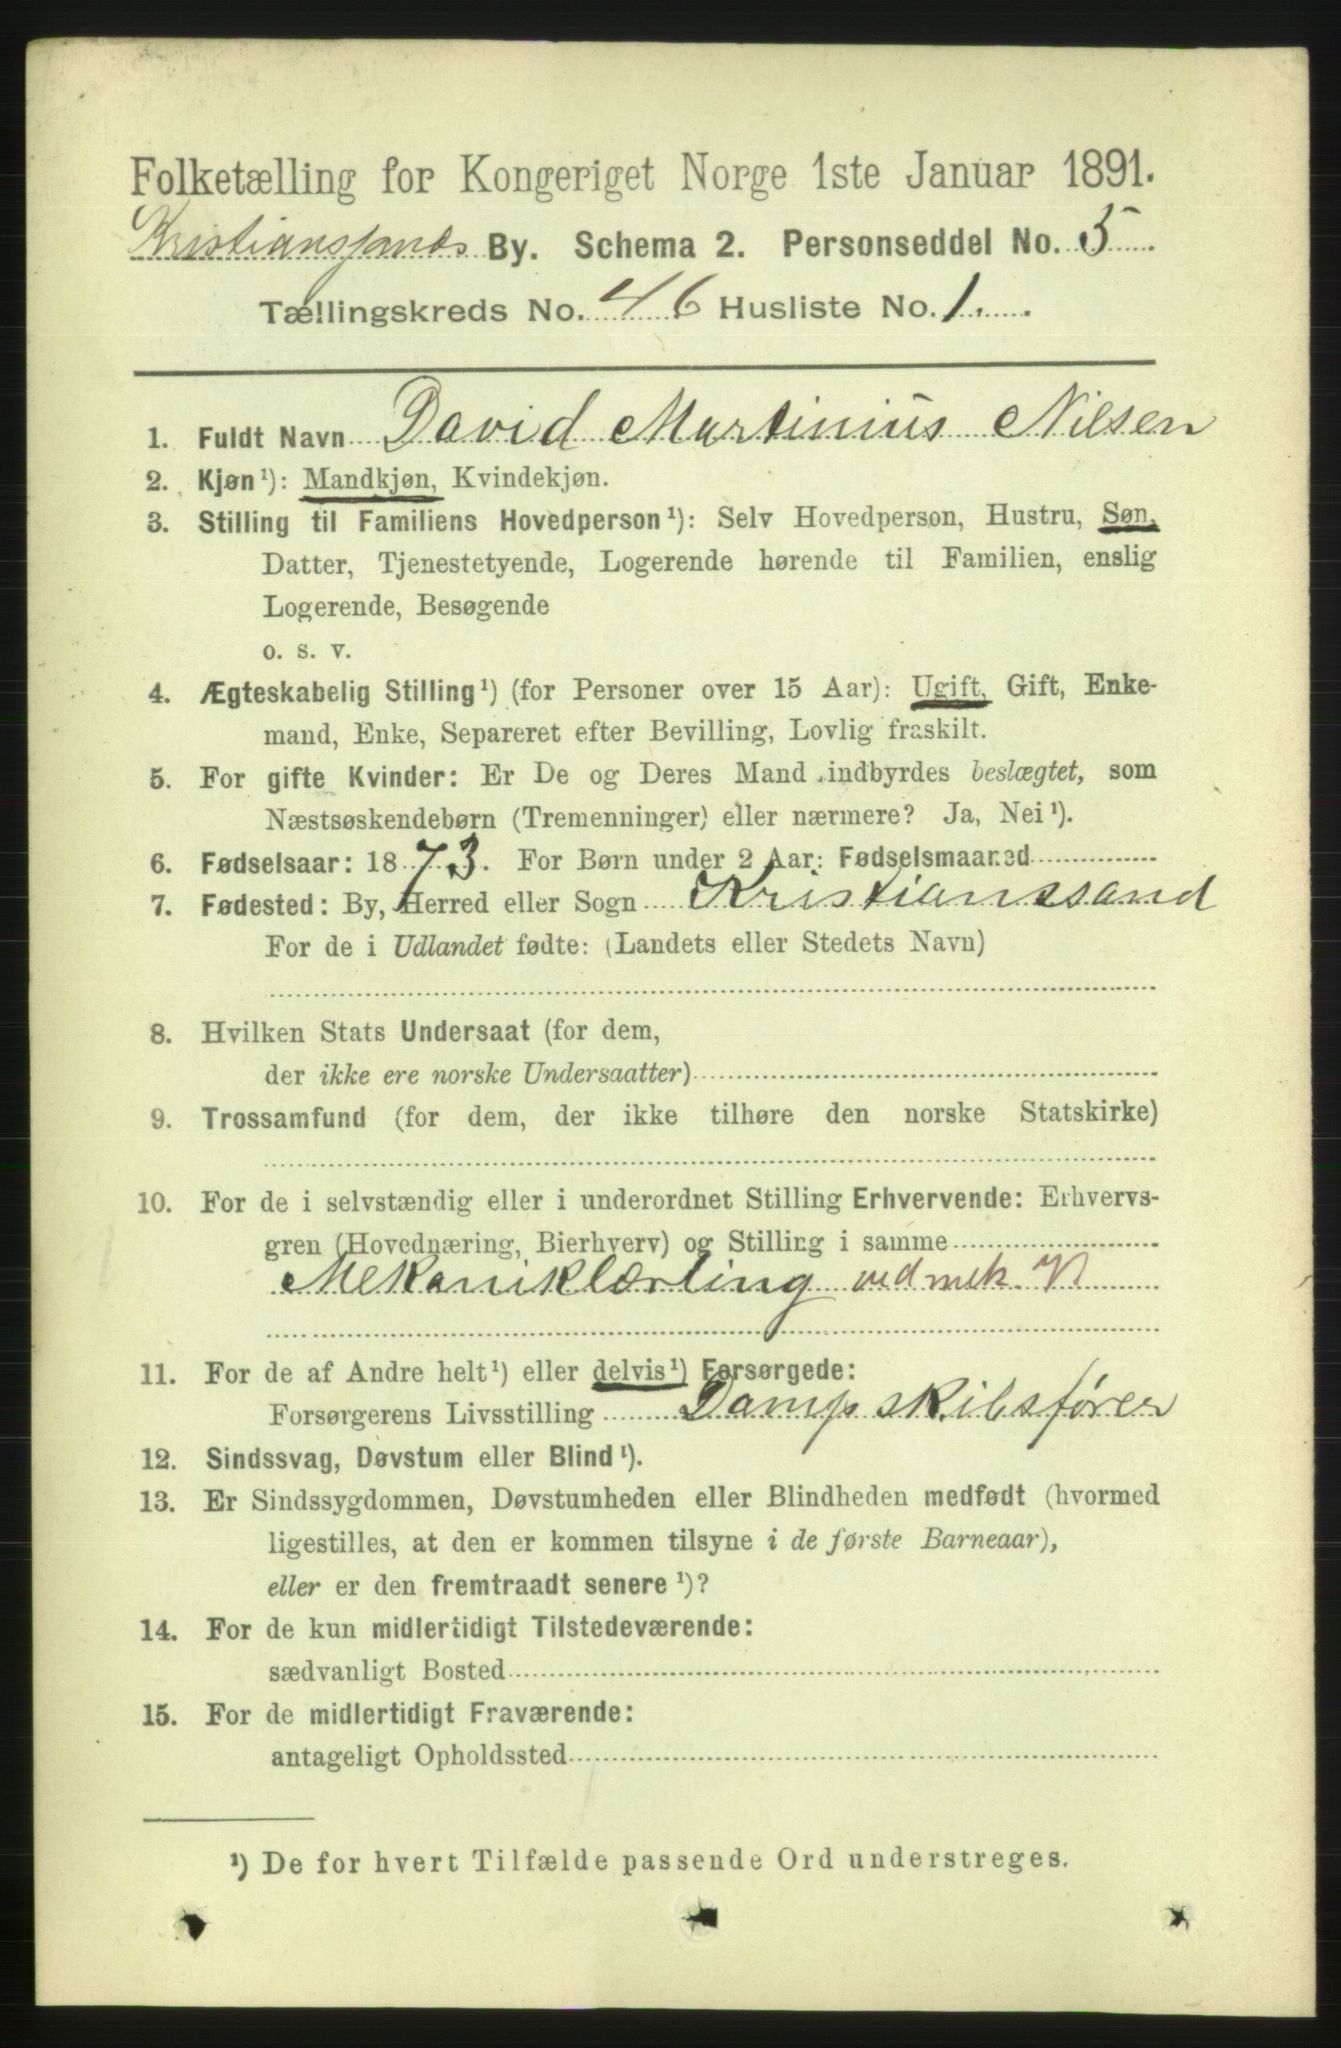 Folketælling for Kongeriget Norge 1ste Januar 1891.
Kristianssands By. Schema 2. Personseddel No. 5
Tællingskreds No. 46 Husliste No. 1.
1. Fuldt Navn David Martinius Nilsen
2. Kjøn¹): Mandkjøn, Kvindekjøn.
3. Stilling til Familiens Hovedperson¹): Selv Hovedperson, Hustru, Søn,
Datter, Tjenestetyende, Logerende hørende til Familien, enslig
Logerende, Besøgende
o. s. v.
4. Ægteskabelig Stilling¹) (for Personer over 15 Aar): Ugift, Gift, Enke-
mand, Enke, Separeret efter Bevilling, Lovlig fraskilt.
5. For gifte Kvinder: Er De og Deres Mand indbyrdes beslægtet, som
Næstsøskendebørn (Tremenninger) eller nærmere? Ja, Nei¹).
6. Fødselsaar: 1873. For Børn under 2 Aar: Fødselsmaaned
7. Fødested: By, Herred eller Sogn Kristianssand
For de i Udlandet fødte: (Landets eller Stedets Navn)
8. Hvilken Stats Undersaat (for dem,
der ikke ere norske Undersaatter)
9. Trossamfund (for dem, der ikke tilhøre den norske Statskirke)
10. For de i selvstændig eller i underordnet Stilling Erhvervende: Erhvervs-
gren (Hovednæring, Bierhverv) og Stilling i samme
Mekaniklærling ved mek. V
11. For de af Andre helt¹) eller delvis¹) Forsørgede:
Forsørgerens Livsstilling Dampskibsfører
12. Sindssvag, Døvstum eller Blind¹).
13. Er Sindssygdommen, Døvstumheden eller Blindheden medfødt (hvormed
ligestilles, at den er kommen tilsyne i de første Barneaar),
eller er den fremtraadt senere¹)?
14. For de kun midlertidigt Tilstedeværende:
sædvanligt Bosted
15. For de midlertidigt Fraværende:
antageligt Opholdssted
¹) De for hvert Tilfælde passende Ord understreges.